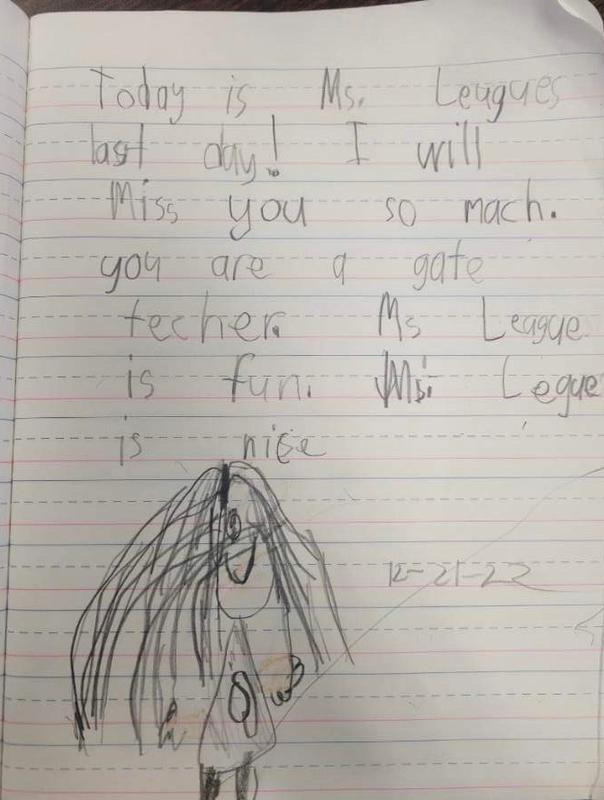 Today is Ms. Leagues
last day! I will
Miss you so mach.
you are a gate
techer. Ms League
is fun. Ms. Legue
is nice
12-21-22